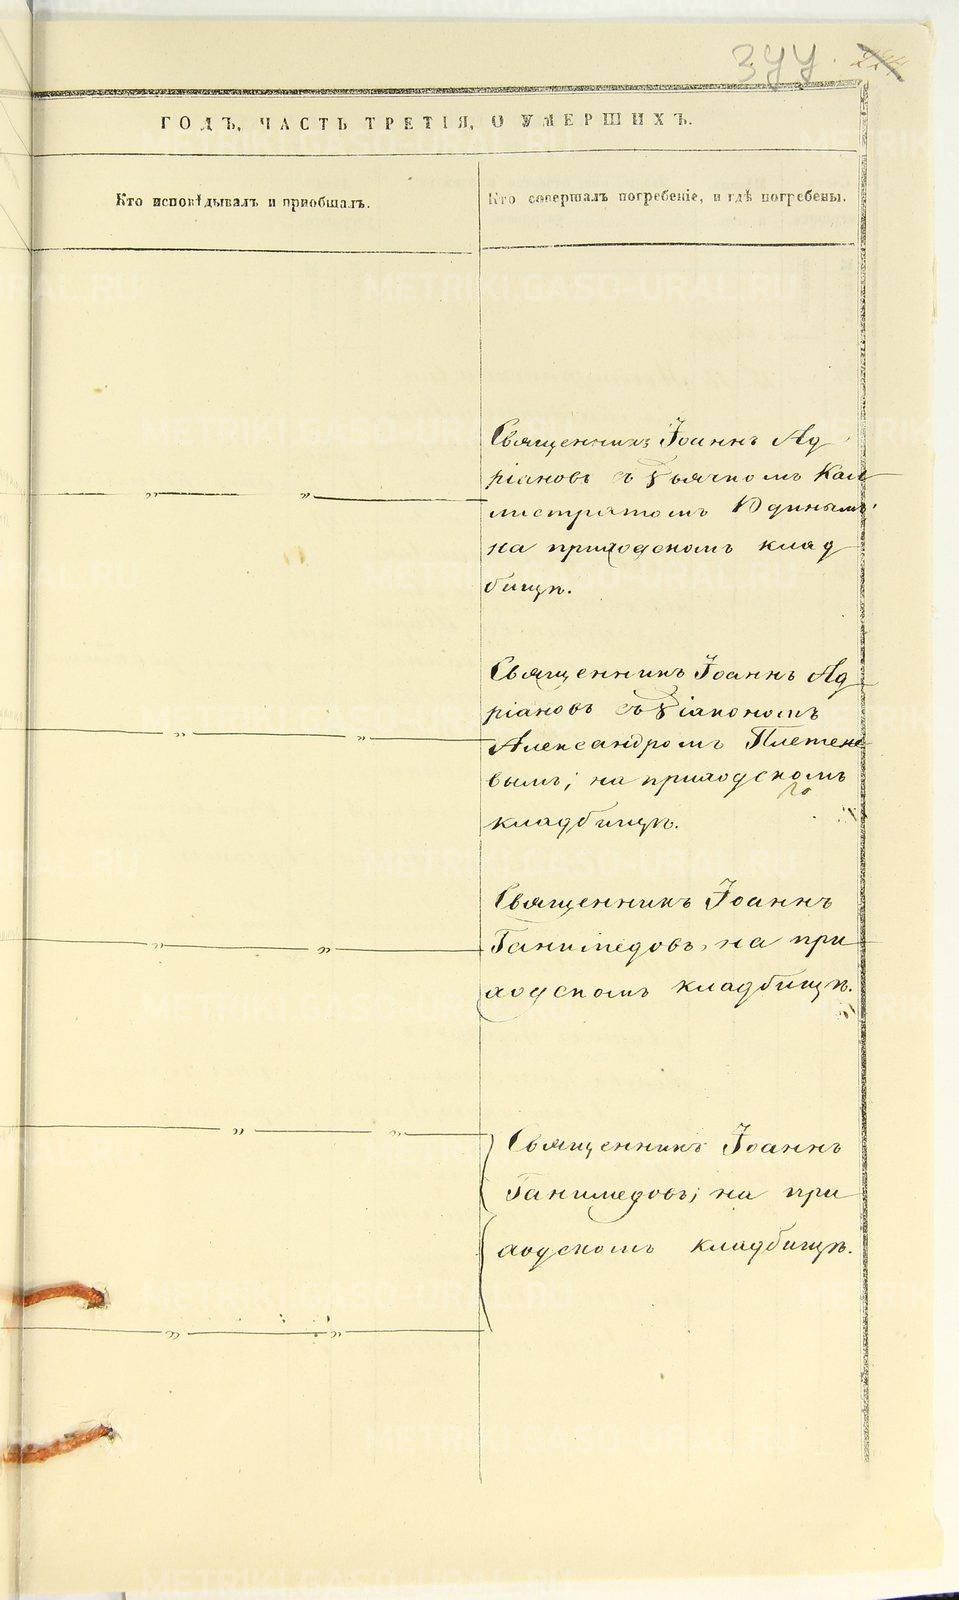 377.
ГОДЪ, ЧАСТЬ ТРЕТІЯ, О УМЕРШИХЪ.
Кто исповѣдывалъ и пріобщалъ.
Кто совершалъ погребеніе, и гдѣ погребены.
Священникъ Іоаннъ Ад
ріановъ съ дьячкомъ Кал
листратомъ Юдинымъ
на приходскомъ клад
бищѣ.
Священникъ Іоаннъ Ад
ріановъ съ діакономъ
Александромъ Плетене
вымъ; на приходскомъ
кладбищѣ.
Священникъ Іоаннъ
Ганимедовъ, на при
ходскомъ кладбищѣ.
Священникъ Іоаннъ
Ганимедовъ; на при
ходскомъ кладбищѣ.
METRIKI.GASO-URAL.RU